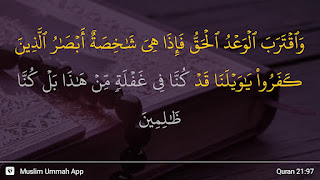 وَٱقْتَرَبَ ٱلْوَعْدُ ٱلْحَقُّ فَإِذَا هِىَ شَـٰخِصَةٌ أَبْصَـٰرُ ٱلَّذِينَ
كَفَرُوا۟ يَـٰوَيْلَنَا قَدْ كُنَّا فِى غَفْلَةٍ مِّنْ هَـٰذَا بَلْ كُنَّا
ظَـٰلِمِينَ
Muslim Ummah App
Quran 21:97